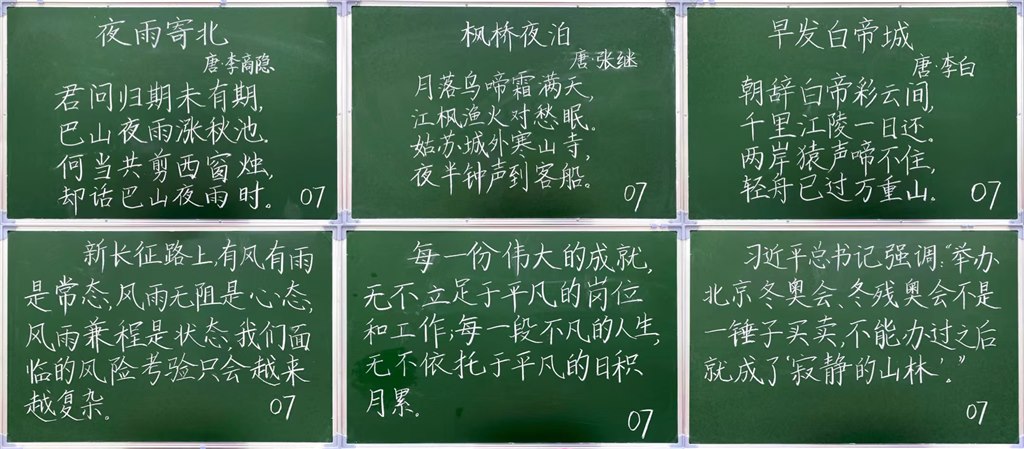 夜雨寄北
唐·李商隐
君问归期未有期,
巴山夜雨涨秋池.
何当共剪西窗烛,
却话巴山夜雨时.
07
枫桥夜泊
唐·张继
月落乌啼霜满天,
江枫渔火对愁眠。
姑苏城外寒山寺,
夜半钟声到客船。
07
早发白帝城
唐·李白
朝辞白帝彩云间,
千里江陵一日还。
两岸猿声啼不住,
轻舟已过万重山.
07
新长征路上,有风有雨
是常态,风雨无阻是心态,
风雨兼程是状态,我们面
临的风险考验只会越来
越复杂。
07
每一份伟大的成就,
无不立足于平凡的岗位
和工作;每一段不凡的人生,
无不依托于平凡的日积
月累。
07
习近平总书记强调:“举办
北京冬奥会、冬残奥会不是
一锤子买卖,不能办过之后
就成了‘寂静的山林’。”
07